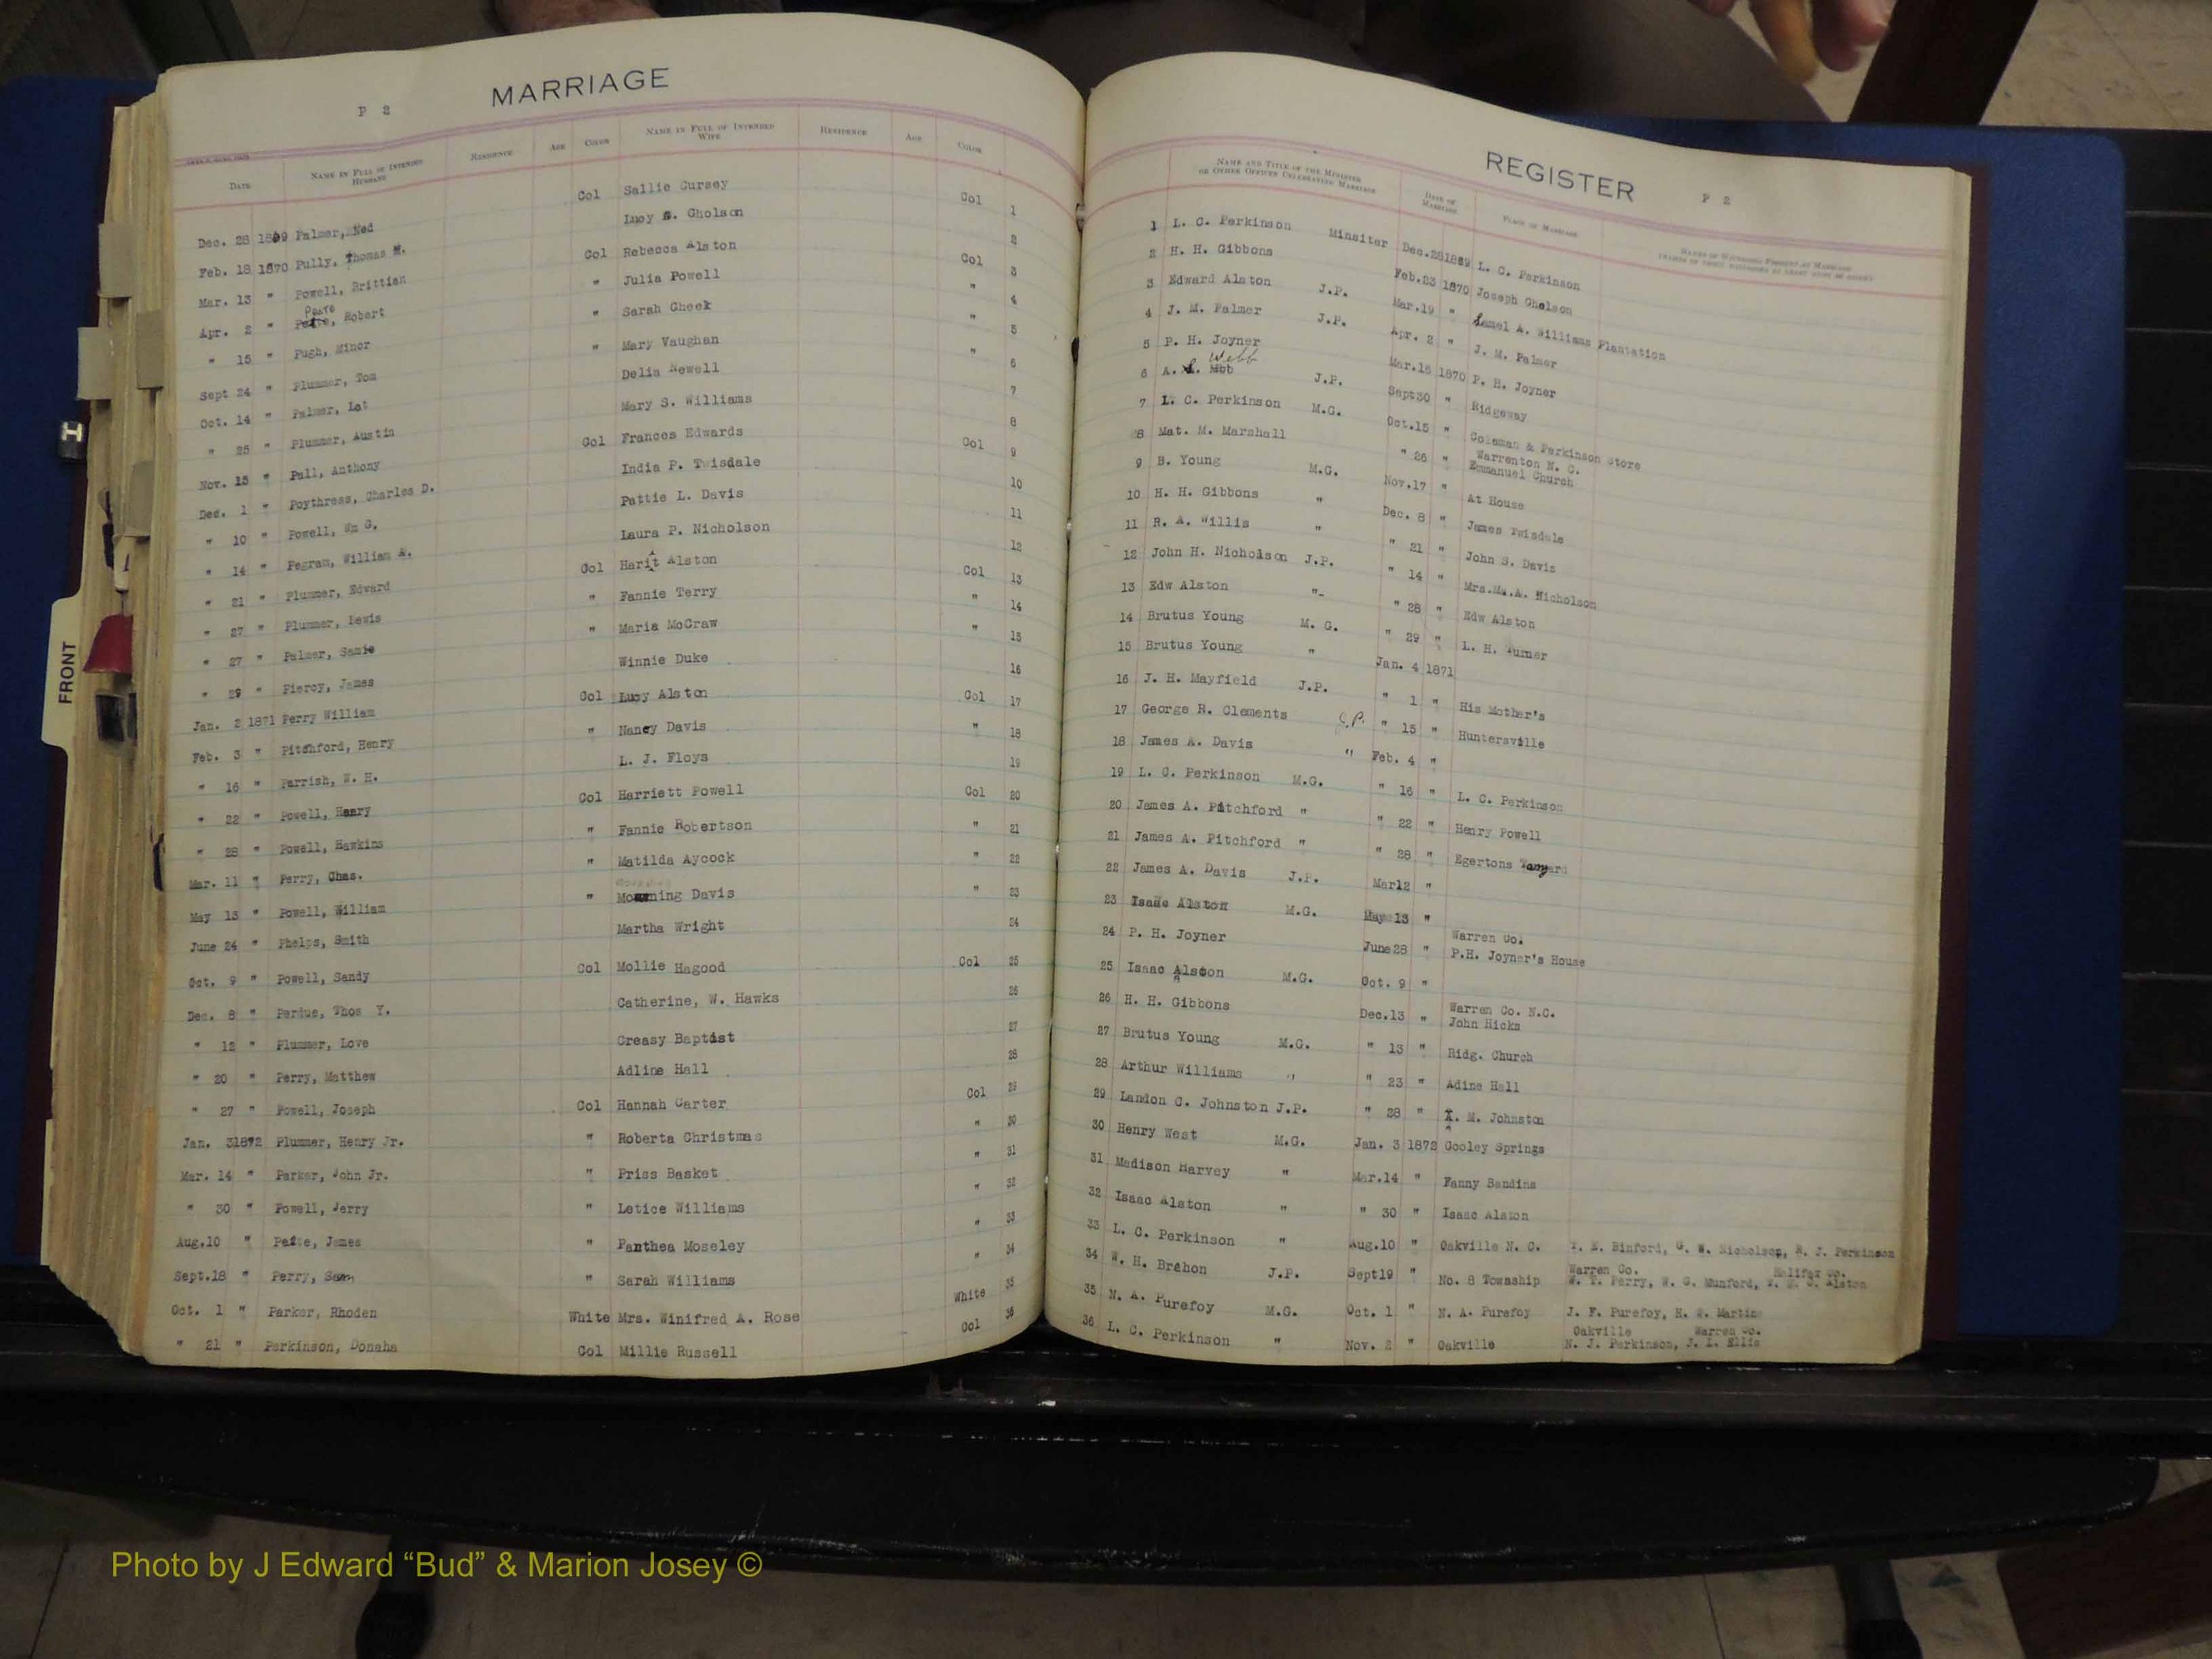 P 2 MARRIAGE
DATE NAME IN FULL OF INTENDED HUSBAND RESIDENCE AGE COLOR NAME IN FULL OF INTENDED WIFE RESIDENCE AGE COLOR
Dec. 28 1869 Palmer, Ned Col Sallie Cursey Col 1
Feb. 18 1870 Pully, Thomas M. Lucy S. Gholson 2
Mar. 13 " Powell, Brittian Col Rebecca Alston Col 3
Apr. 2 " Robert " Julia Powell " 4
" 15 " Pugh, Minor " Sarah Cheek " 5
Sept 24 " Plummer, Tom " Mary Vaughan " 6
Oct. 14 " Palmer, Lot Delia Newell 7
" 25 " Plummer, Austin Mary S. Williams 8
Nov. 15 " Pall, Anthony Col Frances Edwards Col 9
Dec. 1 " Poythress, Charles D. India P. Twisdale 10
" 10 " Powell, Wm G. Pattie L. Davis 11
" 14 " Pegram, William A. Laura P. Nicholson 12
" 21 " Plummer, Edward Col Harit Alston Col 13
" 27 " Plummer, Lewis " Fannie Terry " 14
" 27 " Palmer, Samie " Maria McCraw " 15
" 29 " Piercy, James Winnie Duke 16
Jan. 2 1871 Perry William Col Lucy Alston Col 17
Feb. 3 " Pitchford, Henry " Nancy Davis " 18
" 16 " Parrish, W. H. L. J. Floys 19
" 22 " Powell, Henry Col Harriett Powell Col 20
" 28 " Powell, Hawkins " Fannie Robertson " 21
Mar. 11 " Perry, Chas. " Matilda Aycock " 22
May 13 " Powell, William " Mourning Davis " 23
June 24 " Phelps, Smith Martha Wright 24
Oct. 9 " Powell, Sandy Col Mollie Hagood Col 25
Dec. 8 " Perdue, Thos Y. Catherine, W. Hawks 26
" 12 " Plummer, Love Creasy Baptist 27
" 20 " Perry, Matthew Adline Hall 28
" 27 " Powell, Joseph Col Hannah Carter Col 29
Jan. 31872 Plummer, Henry Jr. " Roberta Christmas " 30
Mar. 14 " Parker, John Jr. " Priss Basket " 31
" 30 " Powell, Jerry " Letice Williams " 32
Aug.10 " James " Panthea Moseley " 33
Sept.18 " Perry, Sam " Sarah Williams " 34
Oct. 1 " Parker, Rhoden White Mrs. Winifred A. Rose White 35
" 21 " Perkinson, Donaha Col Millie Russell Col 36
REGISTER P 2
NAME AND TITLE OF THE MINISTER OR OTHER OFFICER CELEBRATING MARRIAGE DATE OF MARRIAGE PLACE OF MARRIAGE
1 L. C. Perkinson Minsiter Dec.281869 L. C. Perkinson
2 H. H. Gibbons Feb.23 1870 Joseph Gholson
3 Edward Alston J.P. Mar.19 " A. Williams Plantation
4 J. M. Palmer J.P. Apr. 2 " J. M. Palmer
5 P. H. Joyner Mar.15 1870 P. H. Joyner
Webb
6 A. L. J.P. Sept30 " Ridgeway
7 L. C. Perkinson M.G. Oct.15 " Coleman & Perkinson Store
8 Mat. M. Marshall " 26 " Warrenton N. C.
Emmanuel Church
9 B. Young M.G. Nov.17 " At House
10 H. H. Gibbons " Dec. 8 " James Twisdale
11 R. A. Willis " " 21 " John S. Davis
12 John H. Nicholson J.P. " 14 " Mrs.Ma.A. Nicholson
13 Edw Alston " " 28 " Edw Alston
14 Brutus Young M. G. " 29 " L. H. Turner
15 Brutus Young " Jan. 4 1871
16 J. H. Mayfield J.P. " 1 " His Mother's
17 George R. Clements J.P. " 15 " Huntersville
18 James A. Davis " Feb. 4 "
19 L. C. Perkinson M.G. " 16 " L. C. Perkinson
20 James A. Pitchford " " 22 " Henry Powell
21 James A. Pitchford " " 28 " Egertons Tanyard
22 James A. Davis J.P. Mar12 "
23 Isaac Alston M.G. May 13 "
24 P. H. Joyner June28 " Warren Co.
P.H. Joyner's House
25 Isaac Alston M.G. Oct. 9 "
26 H. H. Gibbons Dec.13 " Warren Co. N.C.
John Hicks
27 Brutus Young M.G. " 13 " Ridg. Church
28 Arthur Williams " " 23 " Adine Hall
29 Landon C. Johnston J.P. " 28 " M. Johnston
30 Henry West M.G. Jan. 3 1872 Cooley Springs
31 Madison Harvey " Mar.14 " Fanny Bandins
32 Isaac Alston " " 30 " Isaac Alston
33 L. C. Perkinson " Aug.10 " Oakville N. C. T. E. Binford, G. W. Nicholson, R. J. Perkinson
Warren Co. Halifax Co.
34 W. H. Brehon J.P. Sept19 " No. 8 Township W. T. Perry, W. G. Munford, Alston
35 N. A. Purefoy M.G. Oct. 1 " N. A. Purefoy J. F. Purefoy, H. W. Martin
Oakville Warren Co.
36 L. C. Perkinson " Nov. 2 " Oakville N. J. Perkinson, J. L. Ellis
FRONT
H
Photo by J Edward “Bud” & Marion Josey ©